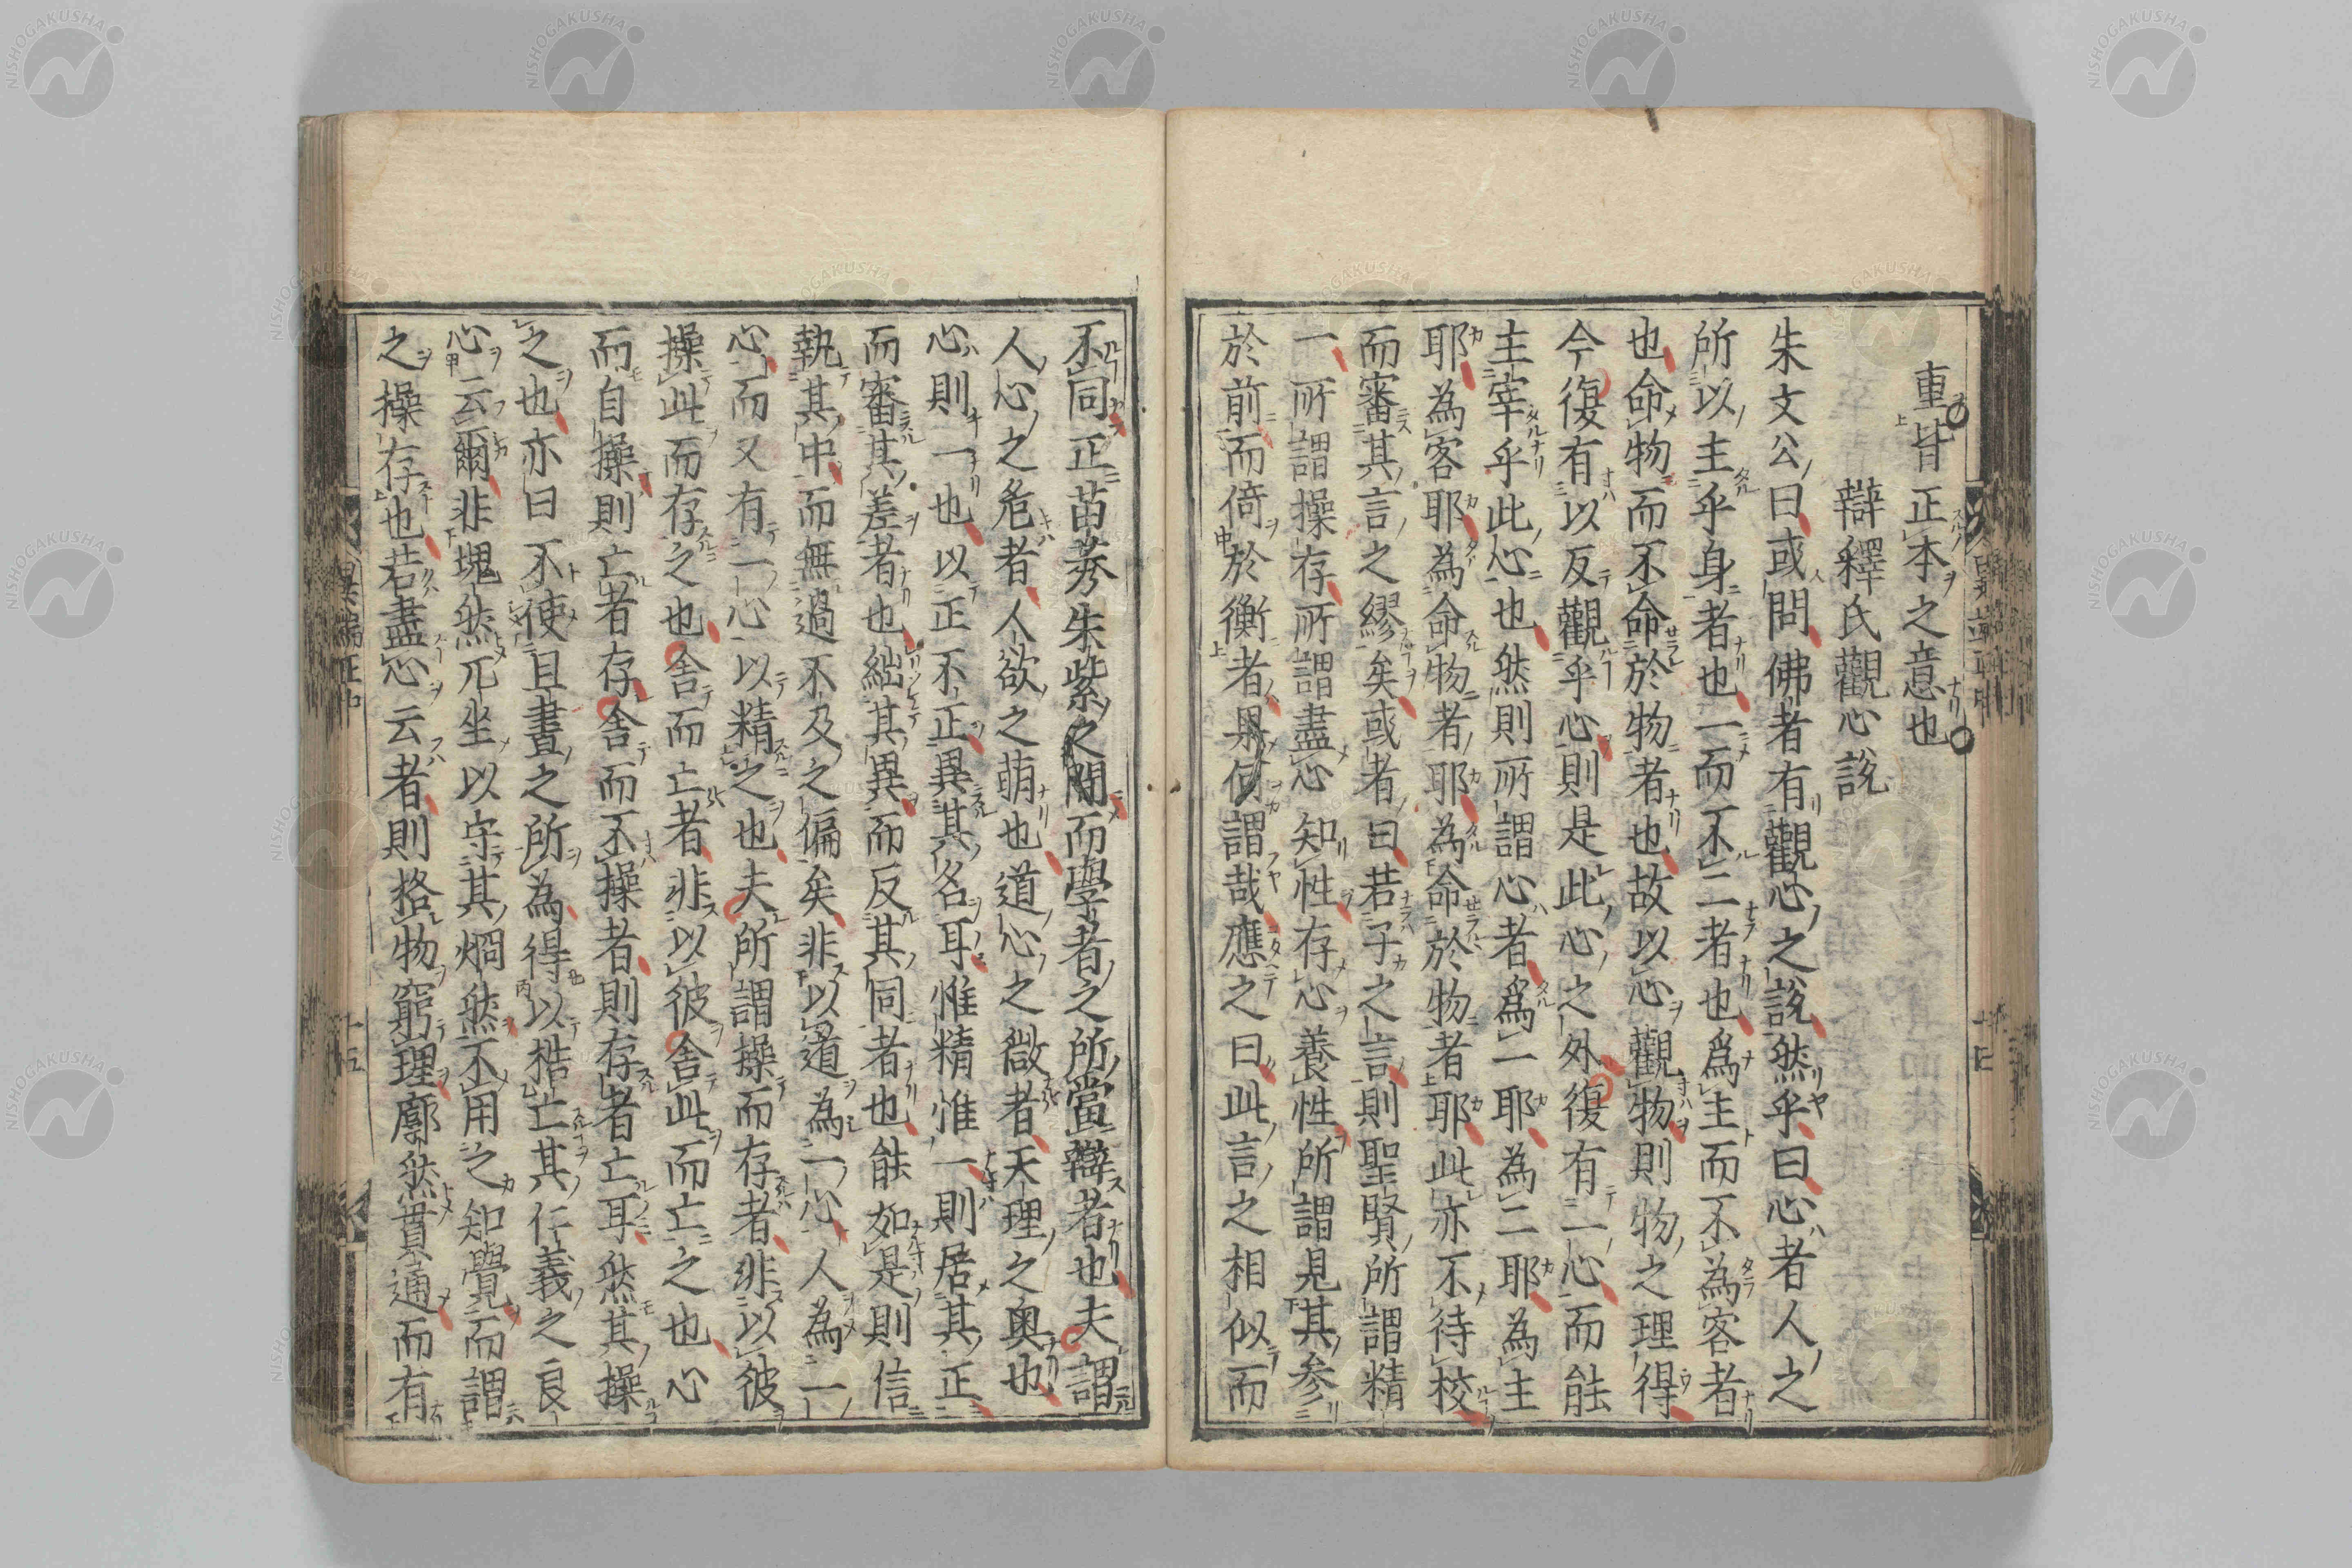 重皆正本之意也
辯釋氏觀心說
朱文公曰或問佛者有觀心之說然乎曰心者人之
所以主乎身者也一而不二者也爲主而不為客者
也命物而不命於物者也故以心觀物則物之理得
今復有以反觀乎心則是此心之外復有一心而能
主宰乎此心也然則所謂心者爲一耶為二耶為主
耶為客耶為命物者耶為命於物者耶此亦不待校
而審其言之繆矣或者曰若子之言則聖賢所謂精
一所謂操存所謂盡心知性存心養性所謂見其参
於前而倚於衡者果何謂哉應之曰此言之相似而
不同正苗莠朱紫之間而學者之所當辯者也夫謂
人心之危者人欲之萌也道心之微者天理之奥也
心則一也以正不正異其名耳惟精惟一則居其正
而審其差者也絀其異而反其同者也能如是則信
執其中而無過不及之偏矣非以道為一心人為一
心而又有一心以精之也夫所謂操而存者非以彼
操此而存之也舍而亡者非以彼舍此而亡之也心
而自操則亡者存舍而不操者則存者亡耳然其操
之也亦曰不使旦晝之所為得以梏亡其仁義之良
心云爾非塊然兀坐以守其烱然不用之知覺而謂
之操存也若盡心云者則格物窮理廓然貫通而有
異端正中
十五
NISHOGAKUSHA